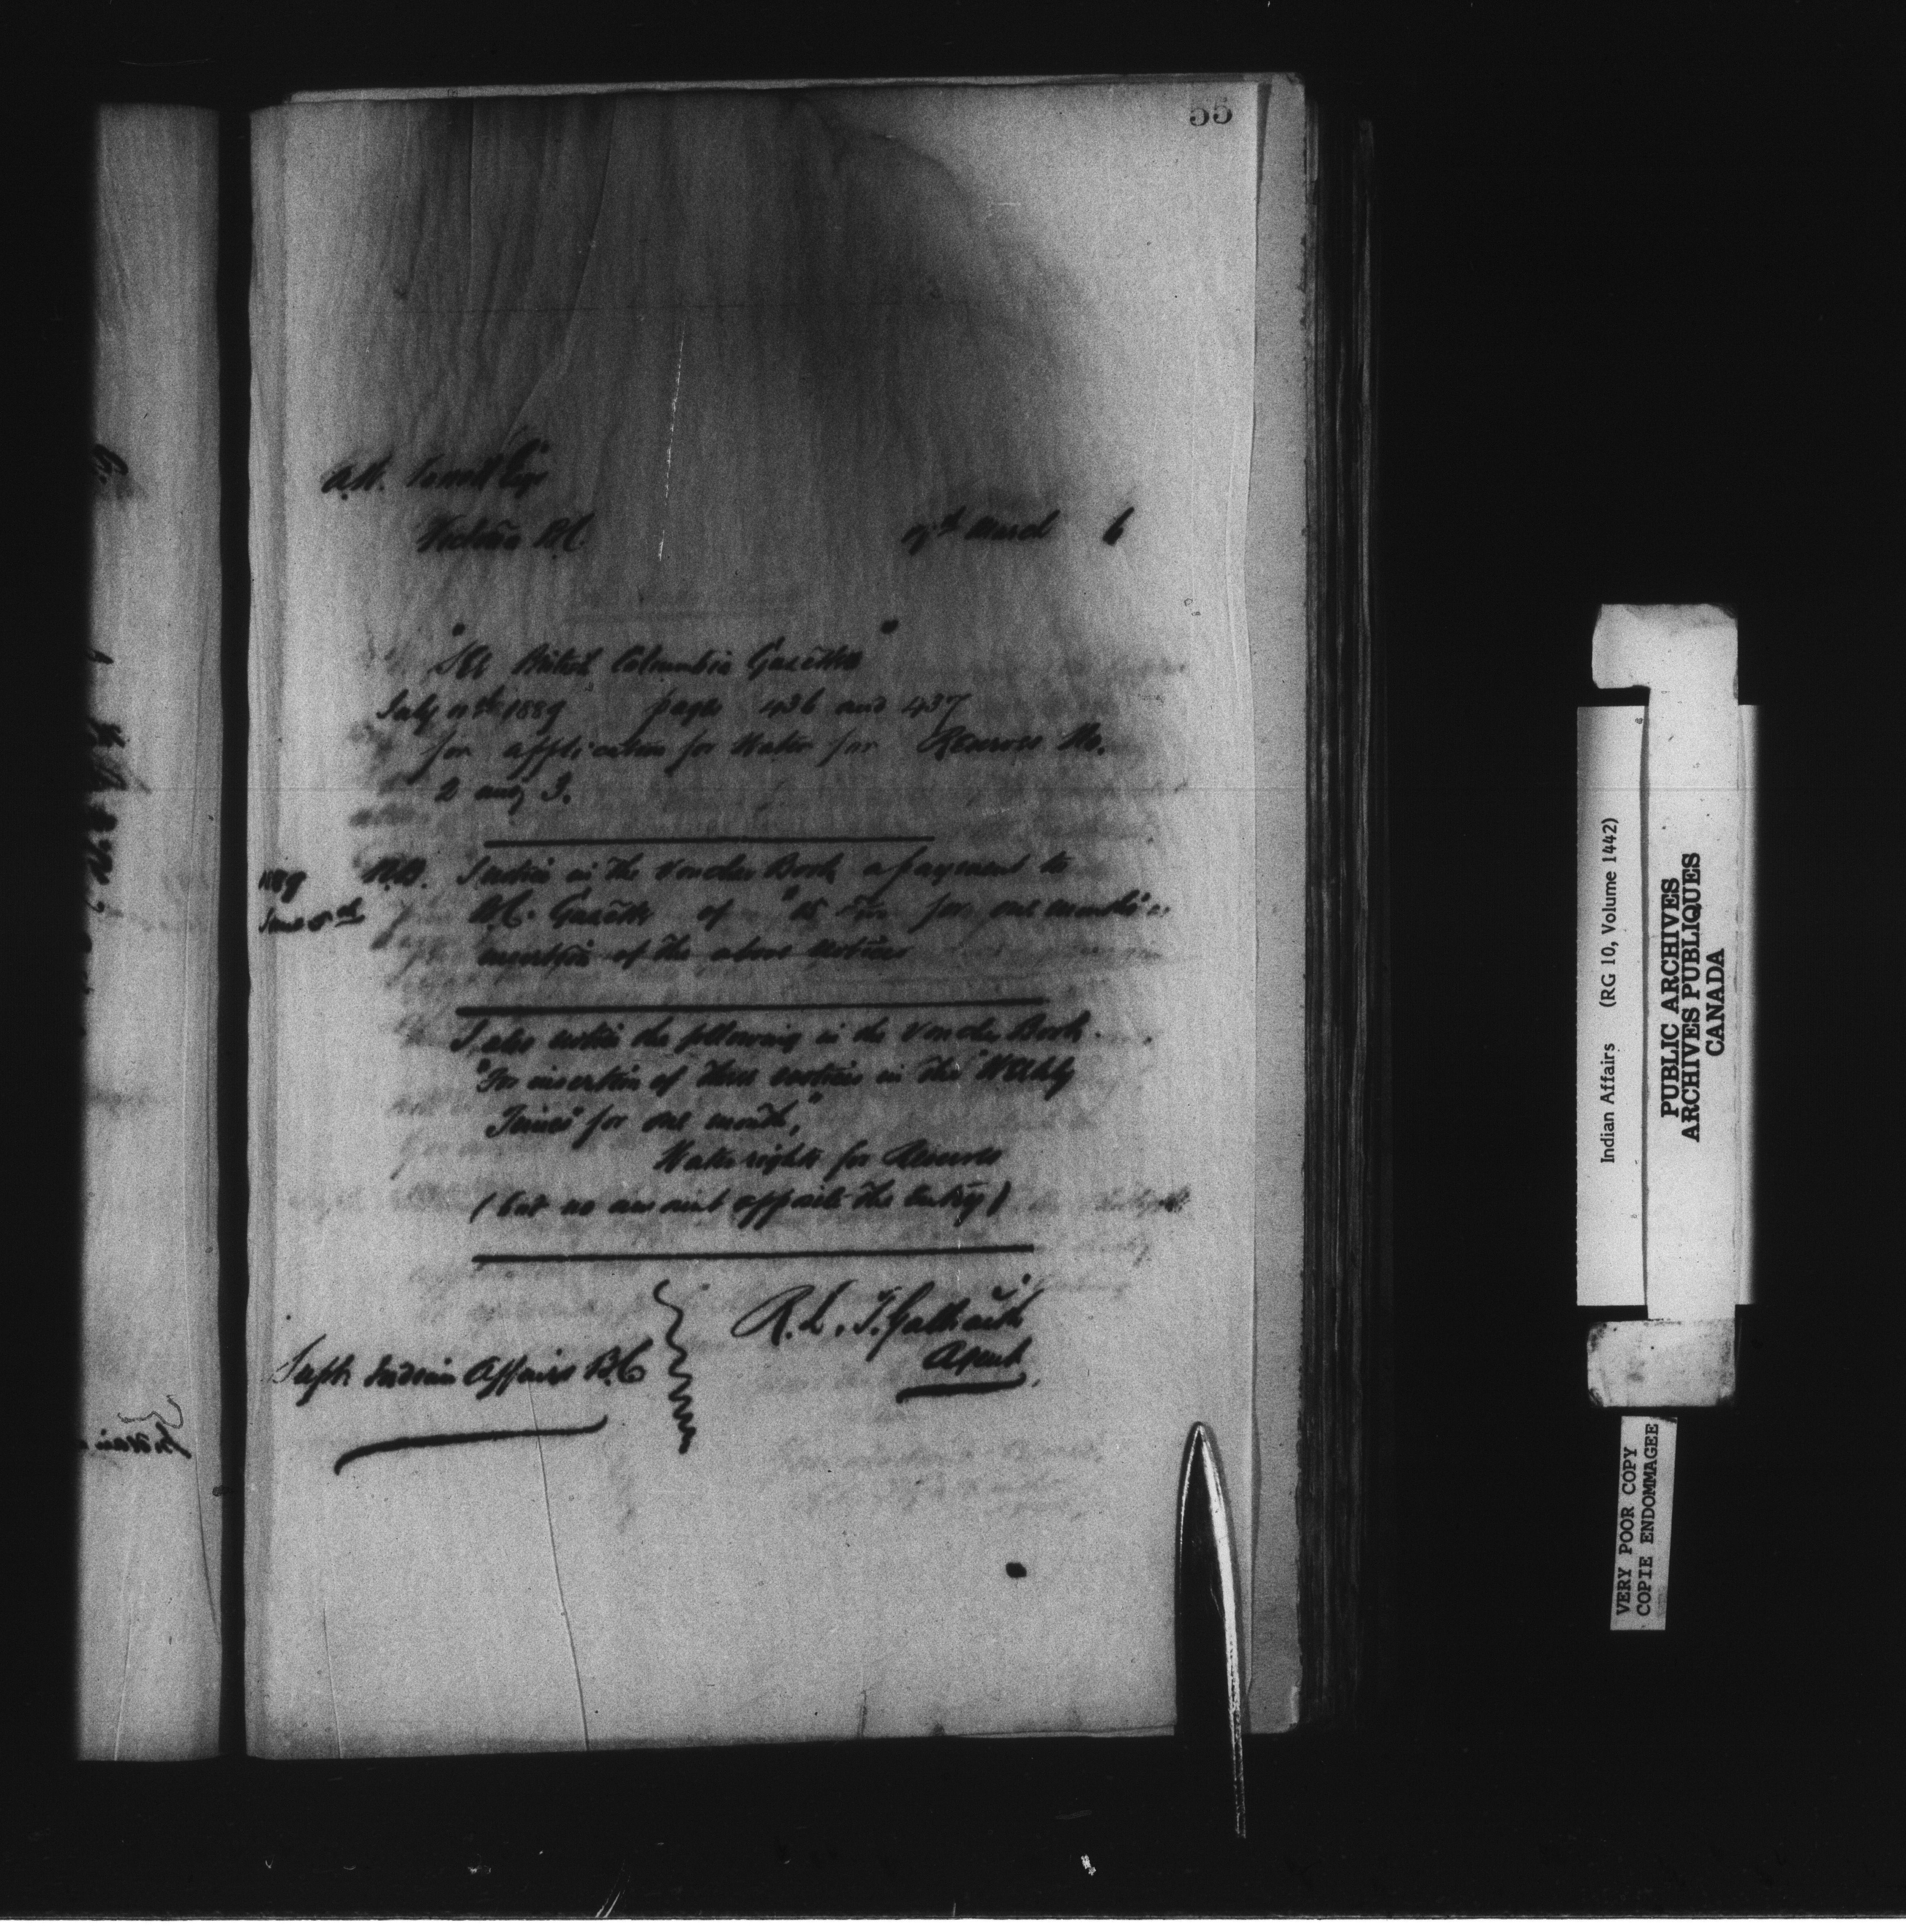 55
A.W. Vowell Esqr
Victoria B.C. 17th March 6
"The British Columbia Gazette"
July 11th 1889 pages 436 and 437
for application for Water for Reserves No.
2 and 3.
1889 N.B. I notice in the Voucher Book a payment to
June 8th B.C. Gazette of for one month's
insertion of the above notices
I also notice the following in the Voucher Book.
"For insertion of three notices in the "Weekly
Times" for one month,"
Water rights for Reserves
(but no amount opposite the Entry)
R.L.T. Galbraith
Agent.
Supt. Indian Affairs B.C.
Indian Affairs (RG 10, Volume 1442)
PUBLIC ARCHIVES
ARCHIVES PUBLIQUES
CANADA
VERY POOR COPY
COPIE ENDOMMAGEE